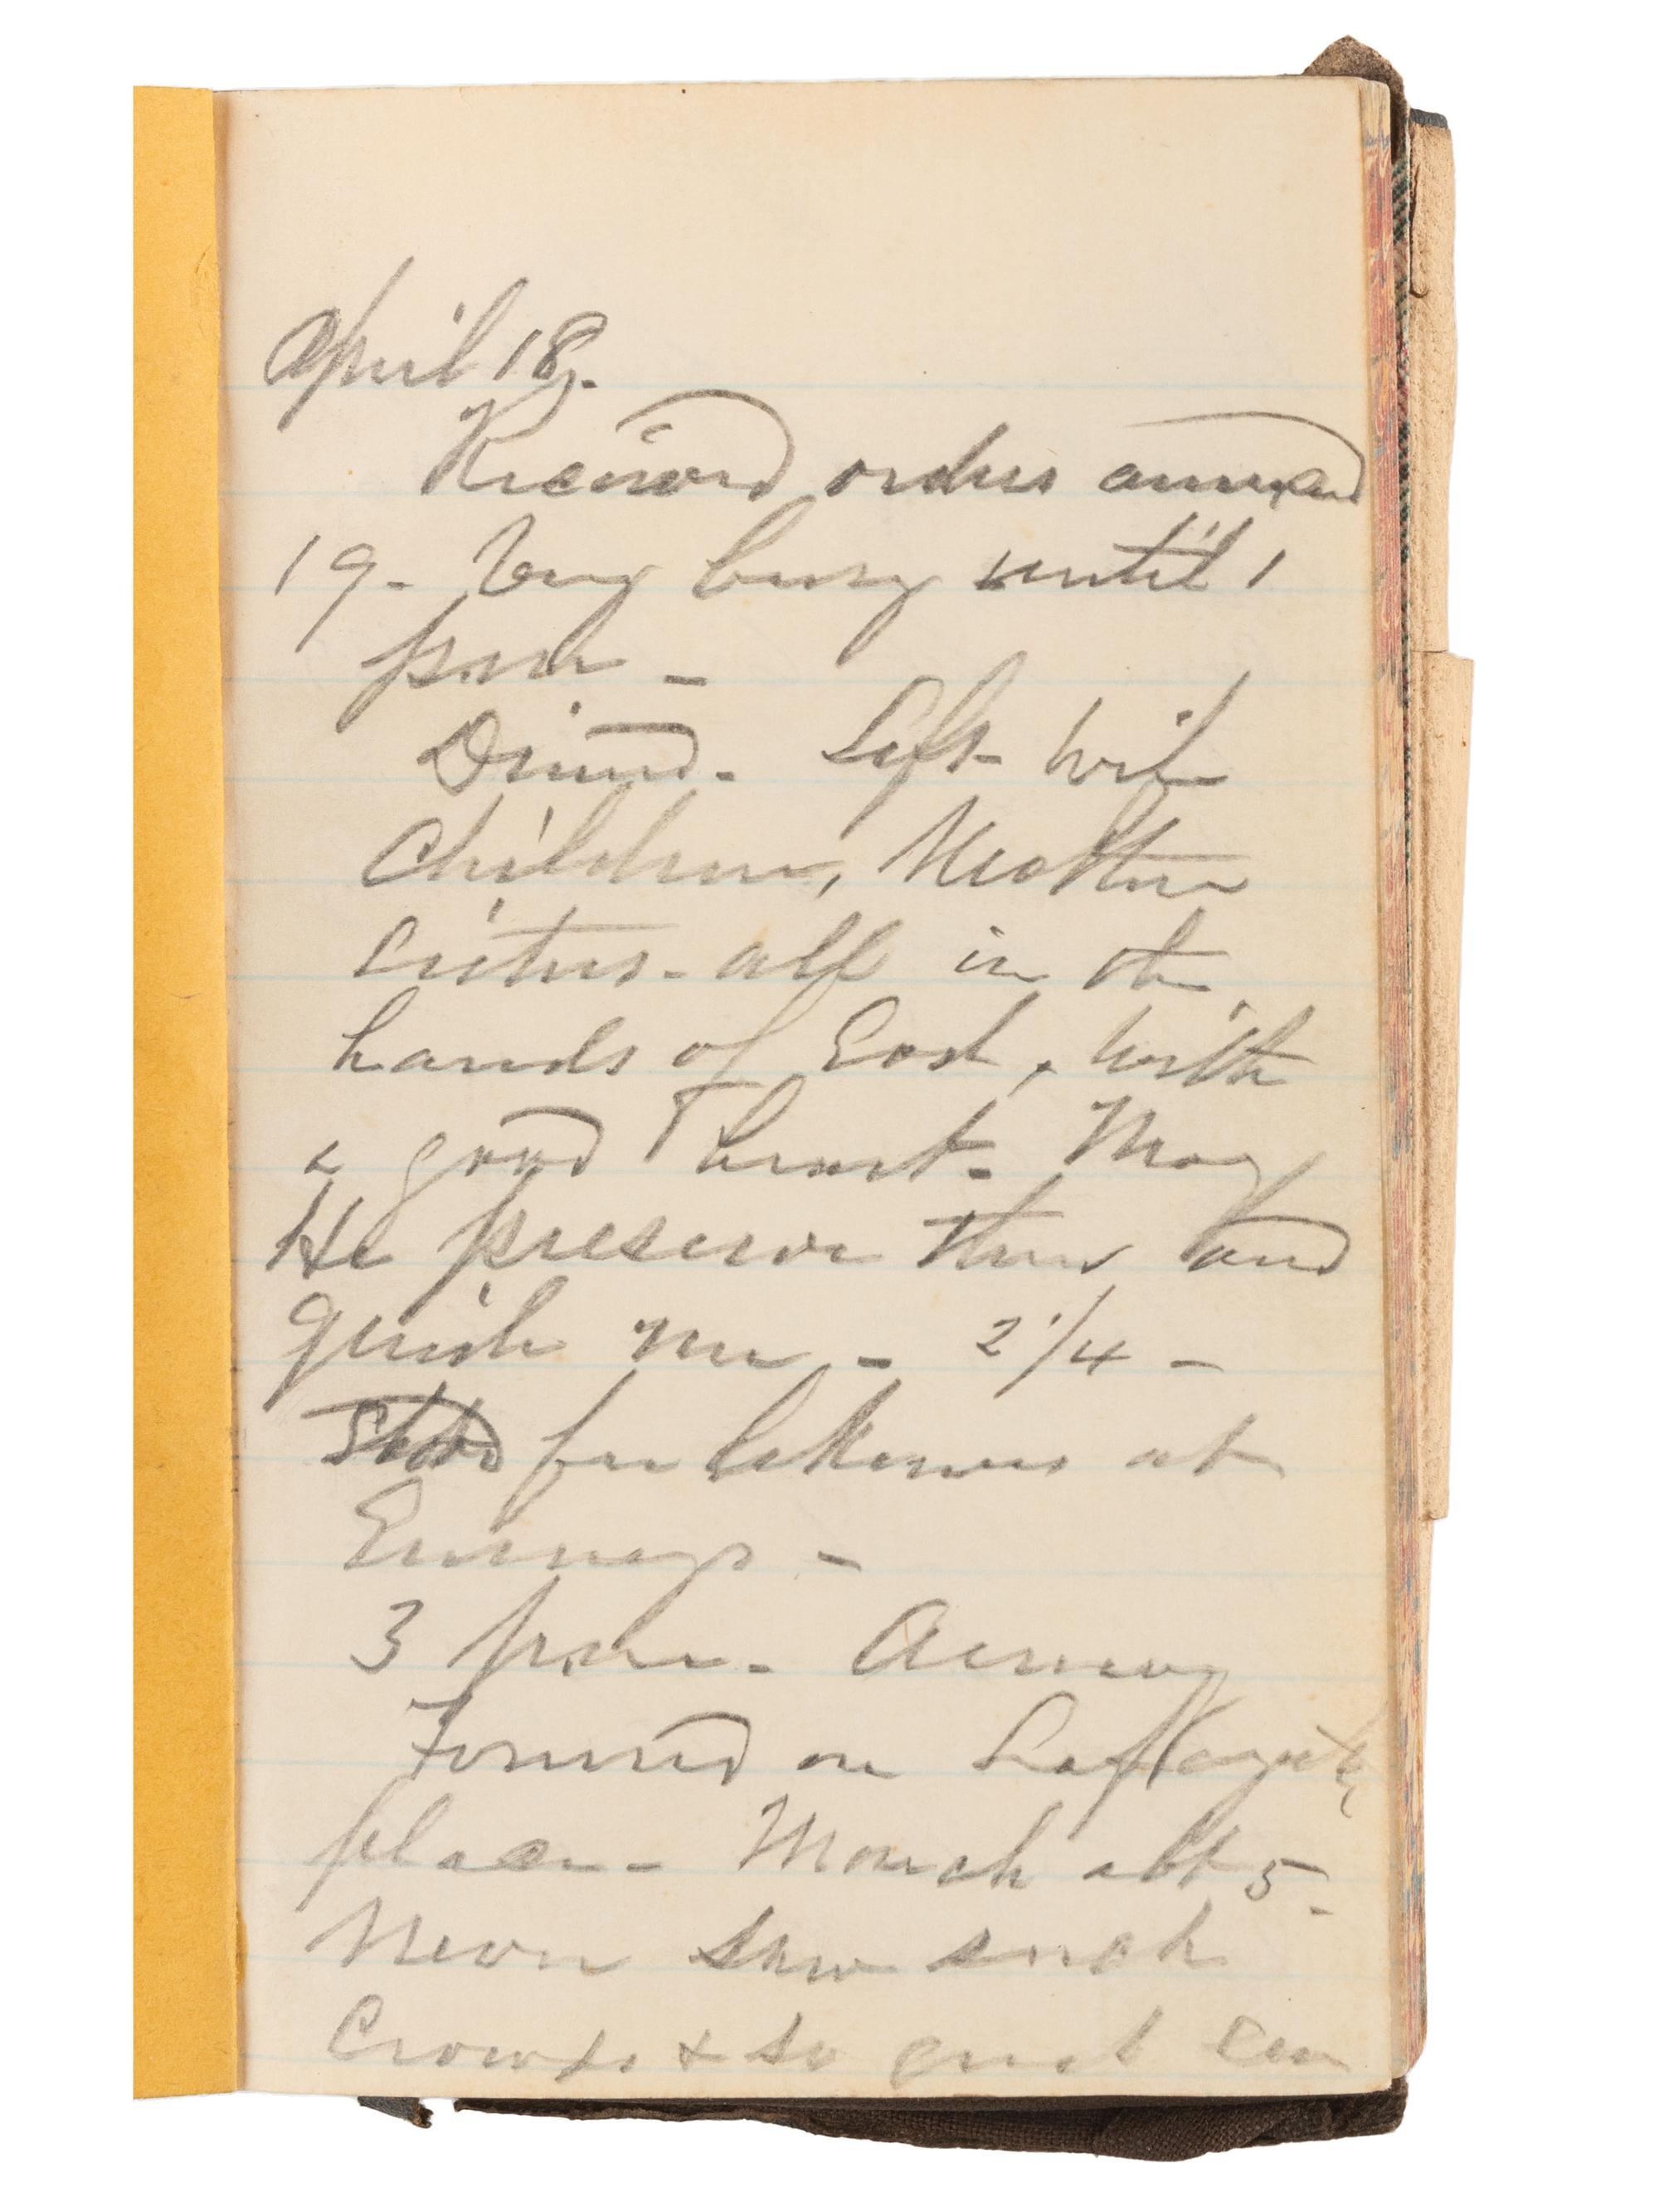 April 18.
Received orders annexed
19. Very busy until 1
p.m. -
Dined. Left wife
Children, Mother
Sisters - all in the
hands of God, with
a good heart. May
He preserve them and
guide me. - 2 1/4 -
for at
3 p.m. - Armory
Formed on Lafayette
place - March abt 5 -
Never saw such
Crowds & so great